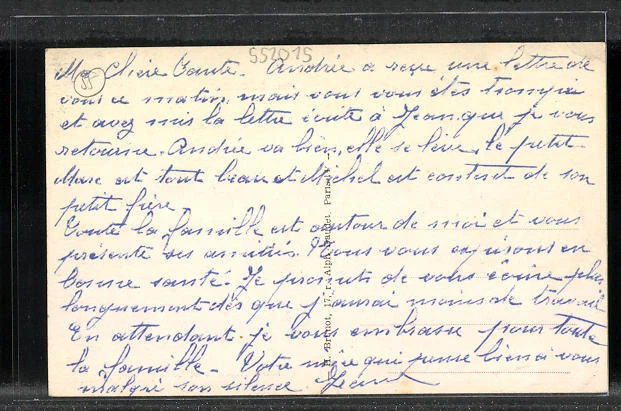 552015
55
Ma Chère Tante. Andrée a reçu une lettre de
vous ce matin, mais vous vous êtes trompée
et avez mis la lettre écrite à Jean, que je vous
retourne. Andrée va bien, elle se lève, le petit
Marc est tout beau et Michel est content de son
petit frère.
Toute la famille est autour de moi et vous
présente ses amitiés. Nous vous espérons en
bonne santé. Je promets de vous écrire plus
longuement dès que j'aurai moins de travail
En attendant je vous embrasse pour toute
la famille - Votre nièce qui pense bien à vous
malgré son silence.
17, r. Alph. Daudet. Paris